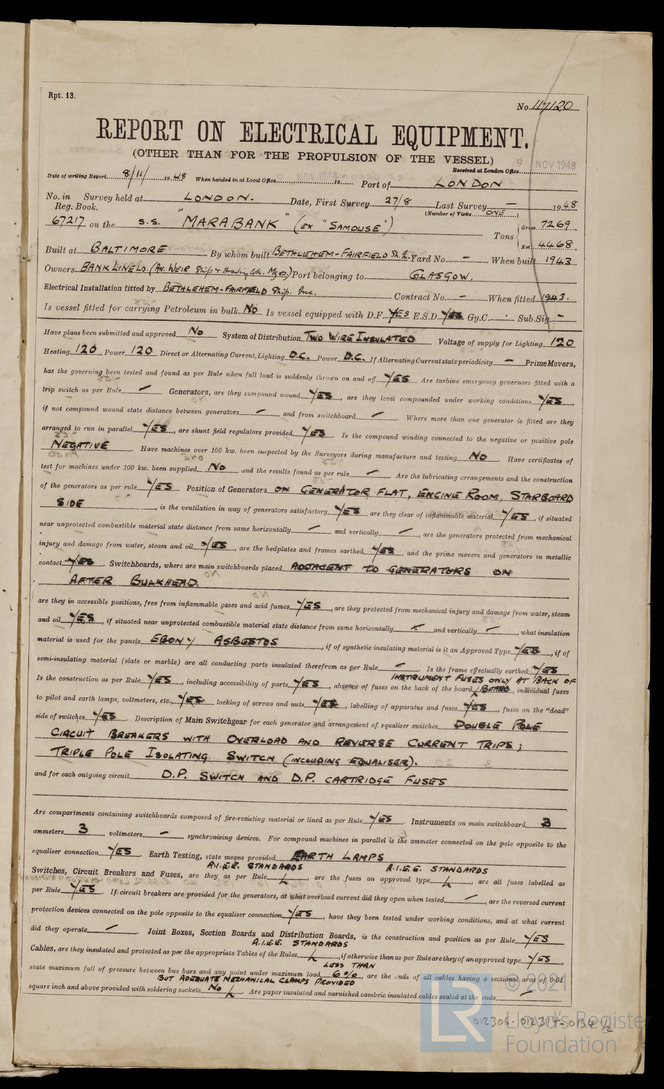 Rpt. 13.
No. 117120
REPORT ON ELECTRICAL EQUIPMENT.
(OTHER THAN FOR THE PROPULSION OF THE VESSEL)
9 NOV 1948
Received at London Office
Date of writing Report 8/11/ 1948 When handed in at Local Office 19 Port of LONDON
No. in Survey held at LONDON. Date, First Survey 27/8 Last Survey — 1948
Reg. Book. (Number of Visits ONE)
67217 on the S.S. "MARABANK" (ex "SAMOUSE") Tons Gross 7269
Net 4468
Built at BALTIMORE By whom built BETHLEHEM-FAIRFIELD Yard No. — When built 1943
Owners BANK LINE LD (An. WEIR Ship + Trading Co. Mgrs) Port belonging to GLASGOW.
Electrical Installation fitted by BETHLEHEM-FAIRFIELD Ship. Inc. Contract No. — When fitted 1943.
Is vessel fitted for carrying Petroleum in bulk NO Is vessel equipped with D.F. YES E.S.D. YES Gy.C. Sub.Sig —
Have plans been submitted and approved NO System of Distribution TWO WIRE INSULATED Voltage of supply for Lighting 120
Heating 120 Power 120 Direct or Alternating Current, Lighting D.C. Power D.C. If Alternating Current state periodicity — Prime Movers,
has the governing been tested and found as per Rule when full load is suddenly thrown on and off YES Are turbine emergency governors fitted with a
trip switch as per Rule — Generators, are they compound wound YES, are they level compounded under working conditions YES,
if not compound wound state distance between generators — and from switchboard — Where more than one generator is fitted are they
arranged to run in parallel YES, are shunt field regulators provided YES Is the compound winding connected to the negative or positive pole
NEGATIVE Have machines over 100 kw. been inspected by the Surveyors during manufacture and testing NO Have certificates of
test for machines under 100 kw. been supplied NO and the results found as per rule — Are the lubricating arrangements and the construction
of the generators as per rule YES Position of Generators ON GENERATOR FLAT, ENGINE ROOM, STARBOARD
SIDE, is the ventilation in way of generators satisfactory YES are they clear of inflammable material YES, if situated
near unprotected combustible material state distance from same horizontally — and vertically —, are the generators protected from mechanical
injury and damage from water, steam and oil YES, are the bedplates and frames earthed YES and the prime movers and generators in metallic
contact YES Switchboards, where are main switchboards placed ADJACENT TO GENERATORS ON
AFTER BULKHEAD.
are they in accessible positions, free from inflammable gases and acid fumes YES, are they protected from mechanical injury and damage from water, steam
and oil YES, if situated near unprotected combustible material state distance from same horizontally — and vertically —, what insulation
material is used for the panels EBONY ASBESTOS, if of synthetic insulating material is it an Approved Type YES, if of
semi-insulating material (slate or marble) are all conducting parts insulated therefrom as per Rule — Is the frame effectually earthed YES
INSTRUMENT FUSES ONLY AT BACK OF
Is the construction as per Rule YES, including accessibility of parts YES, absence of fuses on the back of the board BOARD, individual fuses
to pilot and earth lamps, voltmeters, etc. YES locking of screws and nuts YES, labelling of apparatus and fuses YES, fuses on the "dead"
side of switches YES Description of Main Switchgear for each generator and arrangement of equaliser switches DOUBLE POLE
CIRCUIT BREAKERS WITH OVERLOAD AND REVERSE CURRENT TRIPS;
TRIPLE POLE ISOLATING SWITCH (INCLUDING EQUALISER).
and for each outgoing circuit D.P. SWITCH AND D.P. CARTRIDGE FUSES
Are compartments containing switchboards composed of fire-resisting material or lined as per Rule YES Instruments on main switchboard 3
ammeters 3 voltmeters — synchronising devices. For compound machines in parallel is the ammeter connected on the pole opposite to the
equaliser connection YES Earth Testing, state means provided EARTH LAMPS
A.I.E.E. STANDARDS A.I.E.E. STANDARDS
Switches, Circuit Breakers and Fuses, are they as per Rule, are the fuses an approved type, are all fuses labelled as
per Rule YES If circuit breakers are provided for the generators, at what overload current did they open when tested —, are the reversed current
protection devices connected on the pole opposite to the equaliser connection YES, have they been tested under working conditions, and at what current
did they operate — Joint Boxes, Section Boards and Distribution Boards, is the construction and position as per Rule YES
A.I.E.E. STANDARDS
Cables, are they insulated and protected as per the appropriate Tables of the Rules, if otherwise than as per Rule are they of an approved type YES
LESS THAN
state maximum fall of pressure between bus bars and any point under maximum load 6%, are the ends of all cables having a sectional area of 0.01
BUT ADEQUATE MECHANICAL CLAMPS PROVIDED
square inch and above provided with soldering sockets NO Are paper insulated and varnished cambric insulated cables sealed at the ends —
© 2021
LR
Lloyd's Register
Foundation